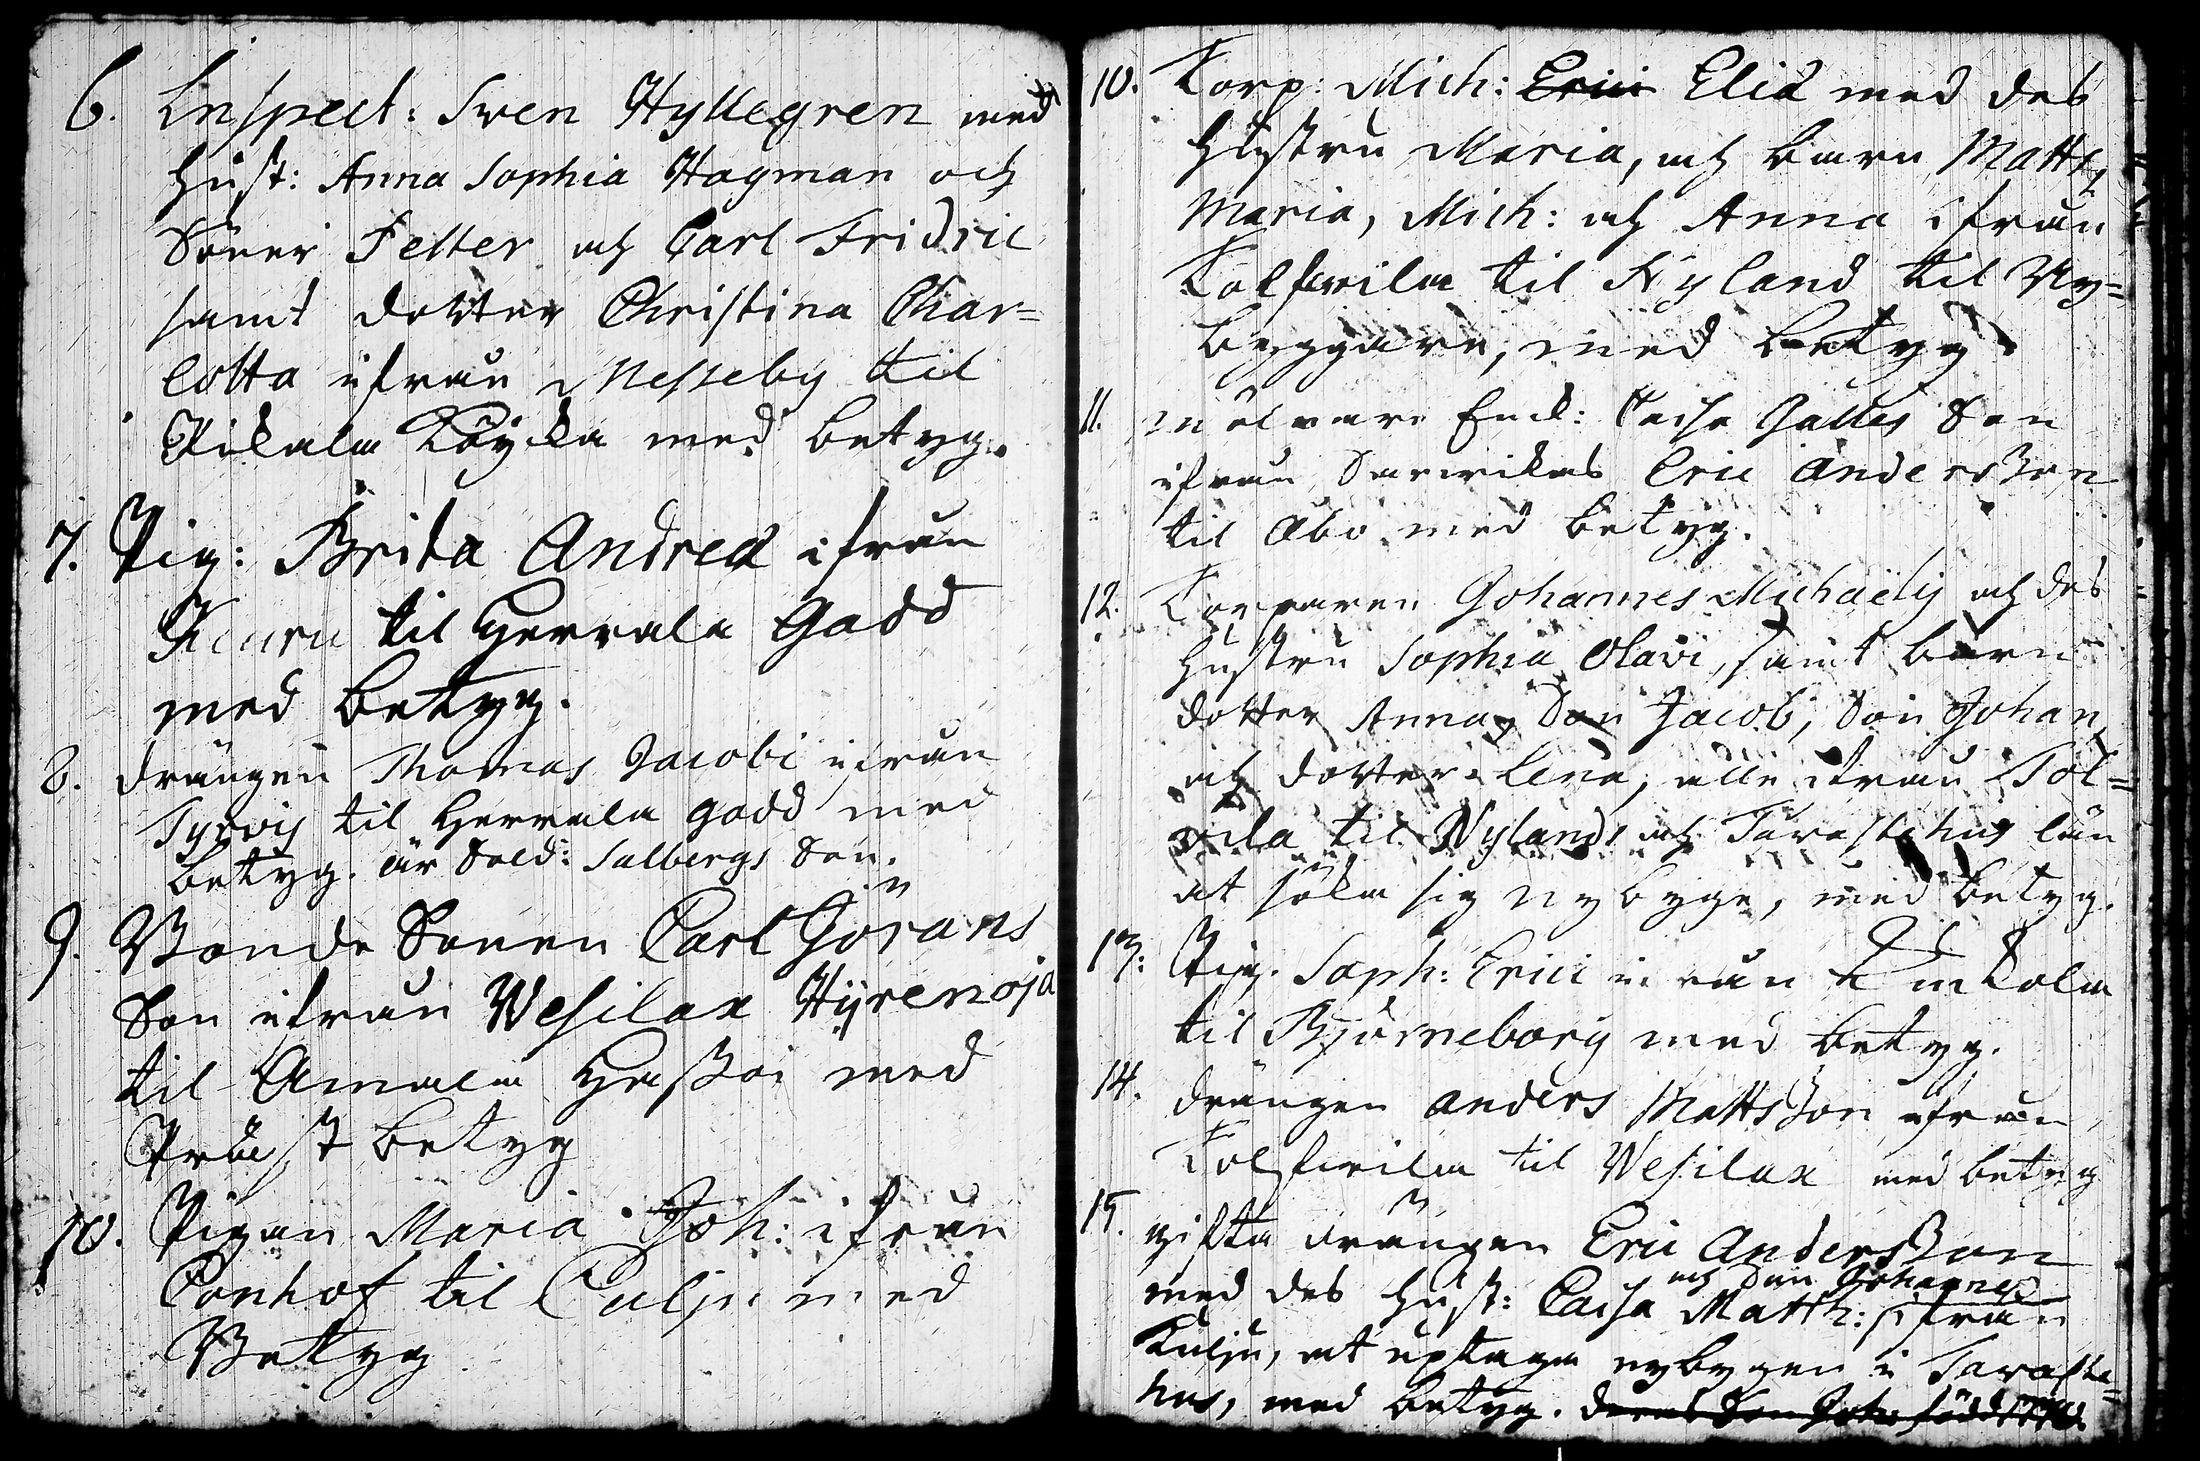 6. Inspect: Swen Hyllegren med
Hust: Anna Sophia Hagman och
Söner Petter och Carl Fridric
samt dotter Christina Char=
lotta ifrån Messeby til
Pikala Löyka med betyg.
7. Pig: Brita Andreæ ifrån
Kuru til Herrala Gadd
med betyg.
8. drängen Thomas Jacobi ifrån
Tyrvis til Herrala gadd med
betyg. är Sold: Salbergs Son.
9. Bonde Sonen Carl Görans
Son ifrån Wesilax Hyrenoja
til Amala med
Präst betyg
10. Pigan Maria Joh: ifrån
til Culju med
Betyg
10. Korp: Mich: Erici Eliæ med des
Hustru Maria, och barn Matts,
Maria, Mich: och Anna ifrån
til Nyland til Ny=
byggare, med betyg.
11. målare Enck: Caisa Galles Son
ifrån Eric Andersson
til Åbo med betyg.
12. Johannes Michaëlis och des
Hustru Sophia Olavi, samt barn
dotter Anna, Son Jacob, Son Johan,
och dotter Lena, alle ifrån Tol=
vila til Nylands och Tavastehus län
at söka sig nybyge, med betyg.
13. Pig. Soph: Erici ifrån
til Björneborg med betyg.
14. drängen Anders Mattsson ifrån
til Wesilax med betyg
15. gifta drängen Eric Andersson
med des Hust: Caisa Matth: och Son Johannes ifrån
Kulju, at uptaga nybygen i Tavaste=
hus, med betyg. deras Son Joh: född